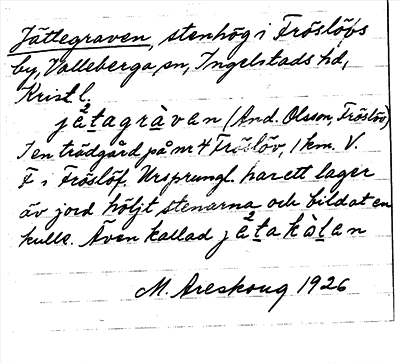 Jättegraven, stenhög i Fröslöfs
by, Valleberga sn, Ingelstads hd,
Krist l.
jä²tagràvan (And. Olsson, Fröslöv)
I en trädgård på nr 4 Fröslöv, 1 km. V.
F i Fröslöf. Ursprungl. har ett lager
äv jord höljt stenarna och bildat en
kulle. Även kallad jä²takàlan
M. Areskoug 1926